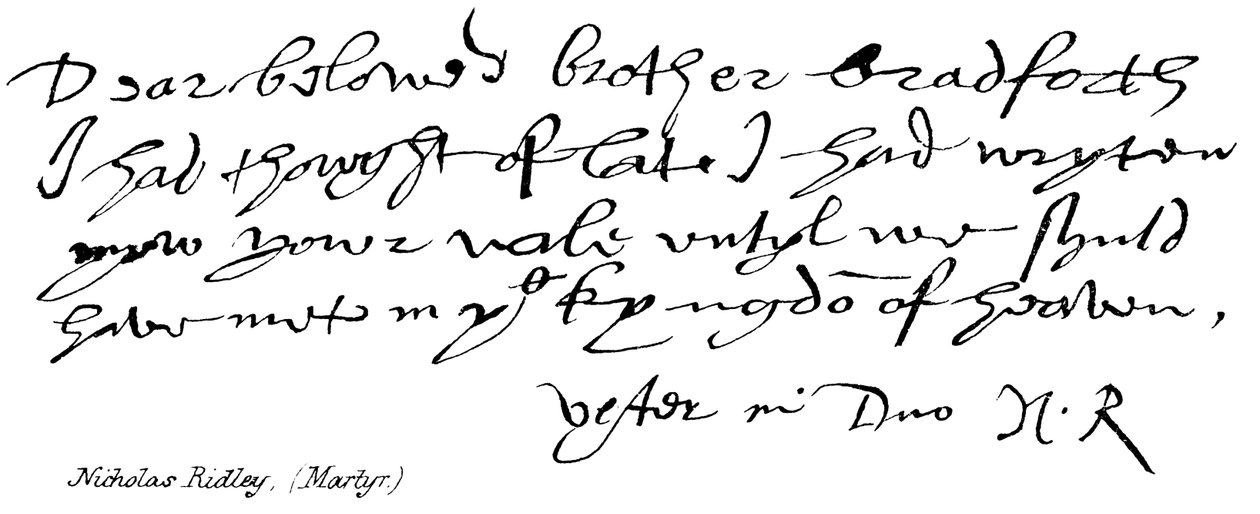 Dear belowed brother Bradforth
I had thowght of late I had wryten
yowr vale vntyl we shuld
have mete in yͤ kyngdō of heaven,
vester in Dno N. R
Nicholas Ridley, (Martyr.)